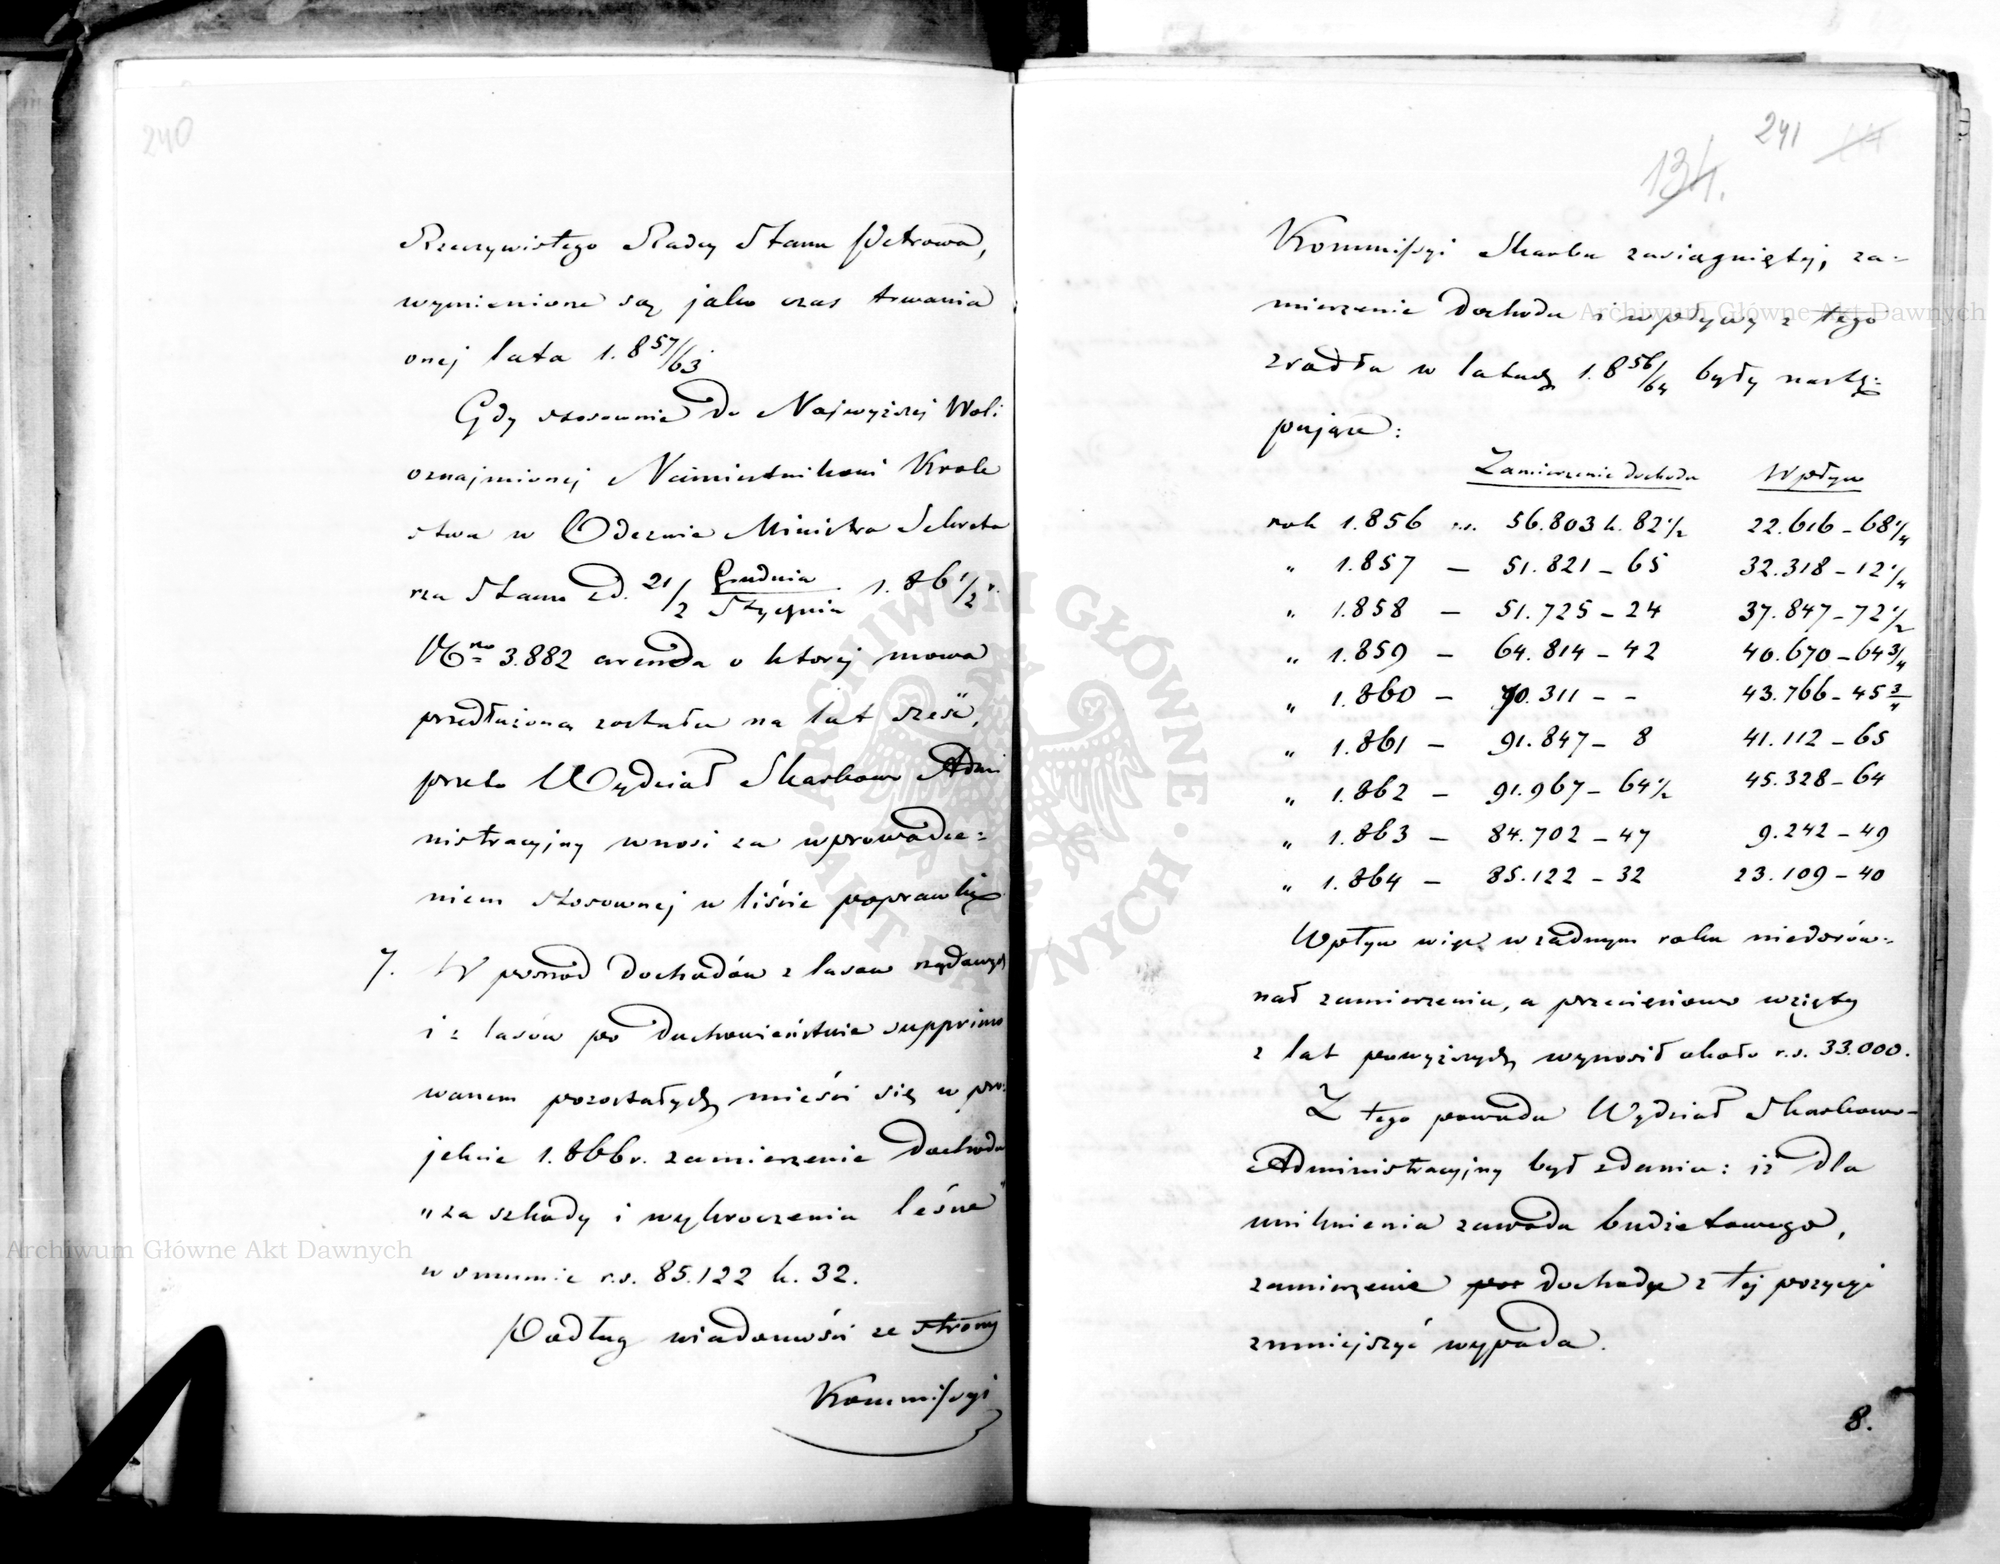 240
Rzeczywistego Radcy Stanu Petrowa,
wymienione są jako czas trwania
onej lata 1.857/63.
Gdy stosownie do Najwyższej Woli
oznajmionej Namiestnikowi Króle
stwa w Odezwie Ministra Sekreta
rza Stanu z d. 21/2 Grudnia/Stycznia 1.861/2 r.
Nro 3.882 arenda o ktorej mowa
przedłużoną została na lat sześć,
przeto Wydział Skarbowo Admi
nistracyjny wnosi za wprowadze=
niem stosownej w liście poprawki.
7. W pośród dochodów z lasów rządowych
i z lasów po Duchowieństwie supprimo
wanem pozostałych mieści się w pro=
jekcie 1.866 r. zamierzenie dochodu
"za szkody i wykroczenia leśne"
w summie r.s. 85.122 k. 32.
Podług wiadomości ze strony
Kommissyi
241
134.
Kommissyi Skarbu zasiągniętej, za=
mierzenie dochodu i wpływy z tego
zrodła w latach 1.856/64 były nastę=
pujące:
Zamierzenie dochodu Wpływ
rok 1.856 r.s. 56.803 k. 82 1/2 22.616 - 68 1/4
" 1.857 - 51.821 - 65 32.318 - 12 1/4
" 1.858 - 51.725 - 24 37.847 - 72 1/2
" 1.859 - 64.814 - 42 40.670 - 64 3/4
" 1.860 - 70.311 - - 43.766 - 45 3/4
" 1.861 - 91.847 - 8 41.112 - 65
" 1.862 - 91.967 - 64 1/2 45.328 - 64
" 1.863 - 84.702 - 47 9.242 - 49
" 1.864 - 85.122 - 32 23.109 - 40
Wpływ więc w żadnym roku niedorów=
nał zamierzeniu, a przecięciowo wzięty
z lat powyższych wynosił około r.s. 33.000.
Z tego powodu Wydział Skarbowo-
Administracyjny był zdania: iż dla
uniknienia zawodu budżetowego,
zamierzenie dochodu z tej pozycyi
zmniejszyć wypada.
8.
Archiwum Główne Akt Dawnych
Archiwum Główne Akt Dawnych
ARCHIWUM GŁÓWNE · AKT DAWNYCH ·